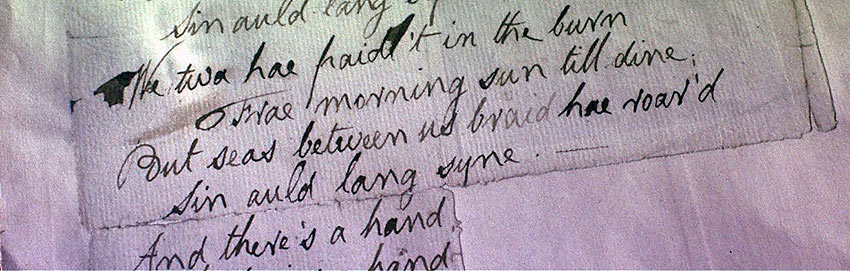 Sin auld lang sy
We twa hae paidl't in the burn
Frae morning sun till dine;
But seas between us braid hae roar'd
Sin auld lang syne.
And there's a hand
hand